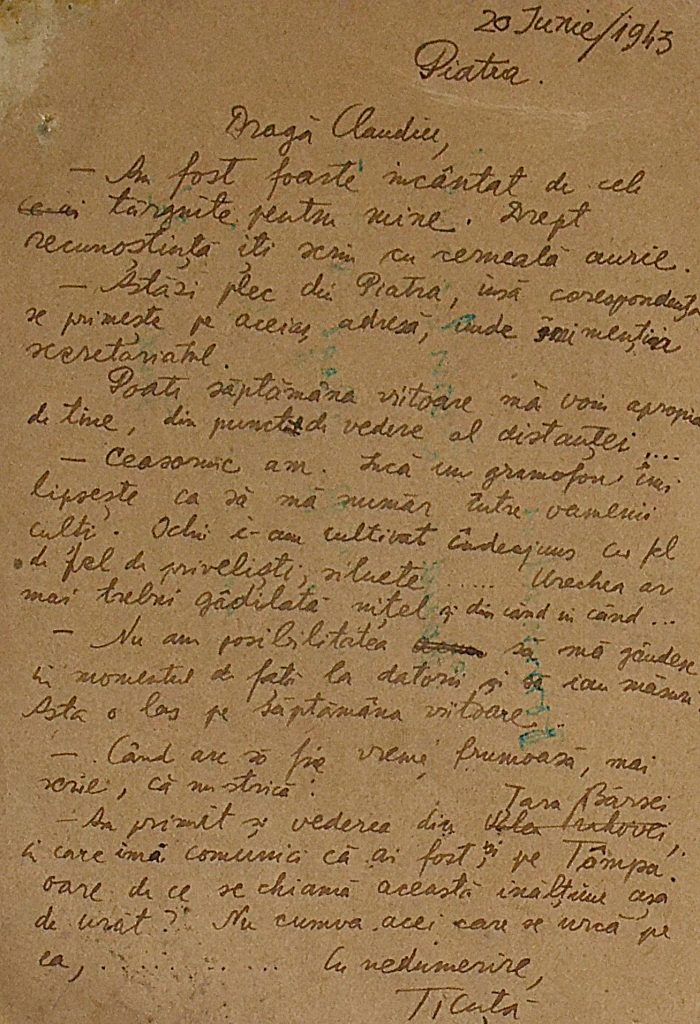 20 Iunie/1943
Piatra.
Dragă Claudiu,
— Am fost foarte incântat de cele
ce-ai târguite pentru mine. Drept
recunoștință iți scriu cu cerneală aurie.
— Astăzi plec din Piatra, insă corespondența
se primește pe aceiaș adresă, unde imi mențin
secretariatul.
Poate săptămâna viitoare mă voiu apropia
de tine, din punct de vedere al distanței ....
— Ceasornic am. Incă un gramofon îmi
lipsește ca să mă număr între oamenii
culți. Ochii i-am cultivat îndeajuns cu fel
de fel de priveliști, siluete ...... Urechea ar
mai trebui gâdilată nițel și din când in când ...
— Nu am posibilitatea să mă gândesc
in momentul de față la datorii și să iau măsuri
Asta o las pe săptămâna viitoare...
— Când are să fie vreme frumoasă, mai
scrie, că nu strică.
Țara Bârsei
— Am primit și vederea din
in care imi comunici că ai fost și pe Tâmpa.
oare de ce se chiamă această inălțime așa
de urât? Nu cumva acei care se urcă pe
ea, ............. Cu nedumerire,
Ticuță